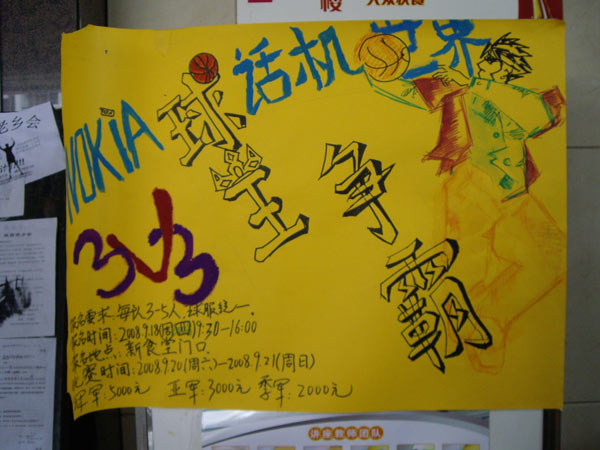 大众软食
话机世界
NOKIA
球王争霸
3V3
报名要求:每队3-5人,球服统一。
报名时间:2008.9.18(周四)9:30-16:00
报名地点:新食堂门口
比赛时间:2008.9.20(周六)-2008.9.21(周日)
冠军:5000元 亚军:3000元 季军:2000元
老乡会
讲座教师团队